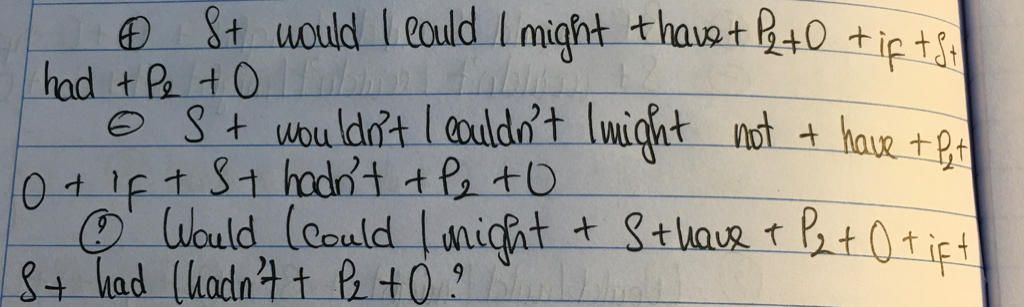 ⊕ S+ would / could / might + have + P2 + O + if + S+
had + P2 + O
⊖ S + wouldn't / couldn't / might not + have + P2+
O + if + S + hadn't + P2 + O
? Would / could / might + S + have + P2 + O + if +
S + had / hadn't + P2 + O ?